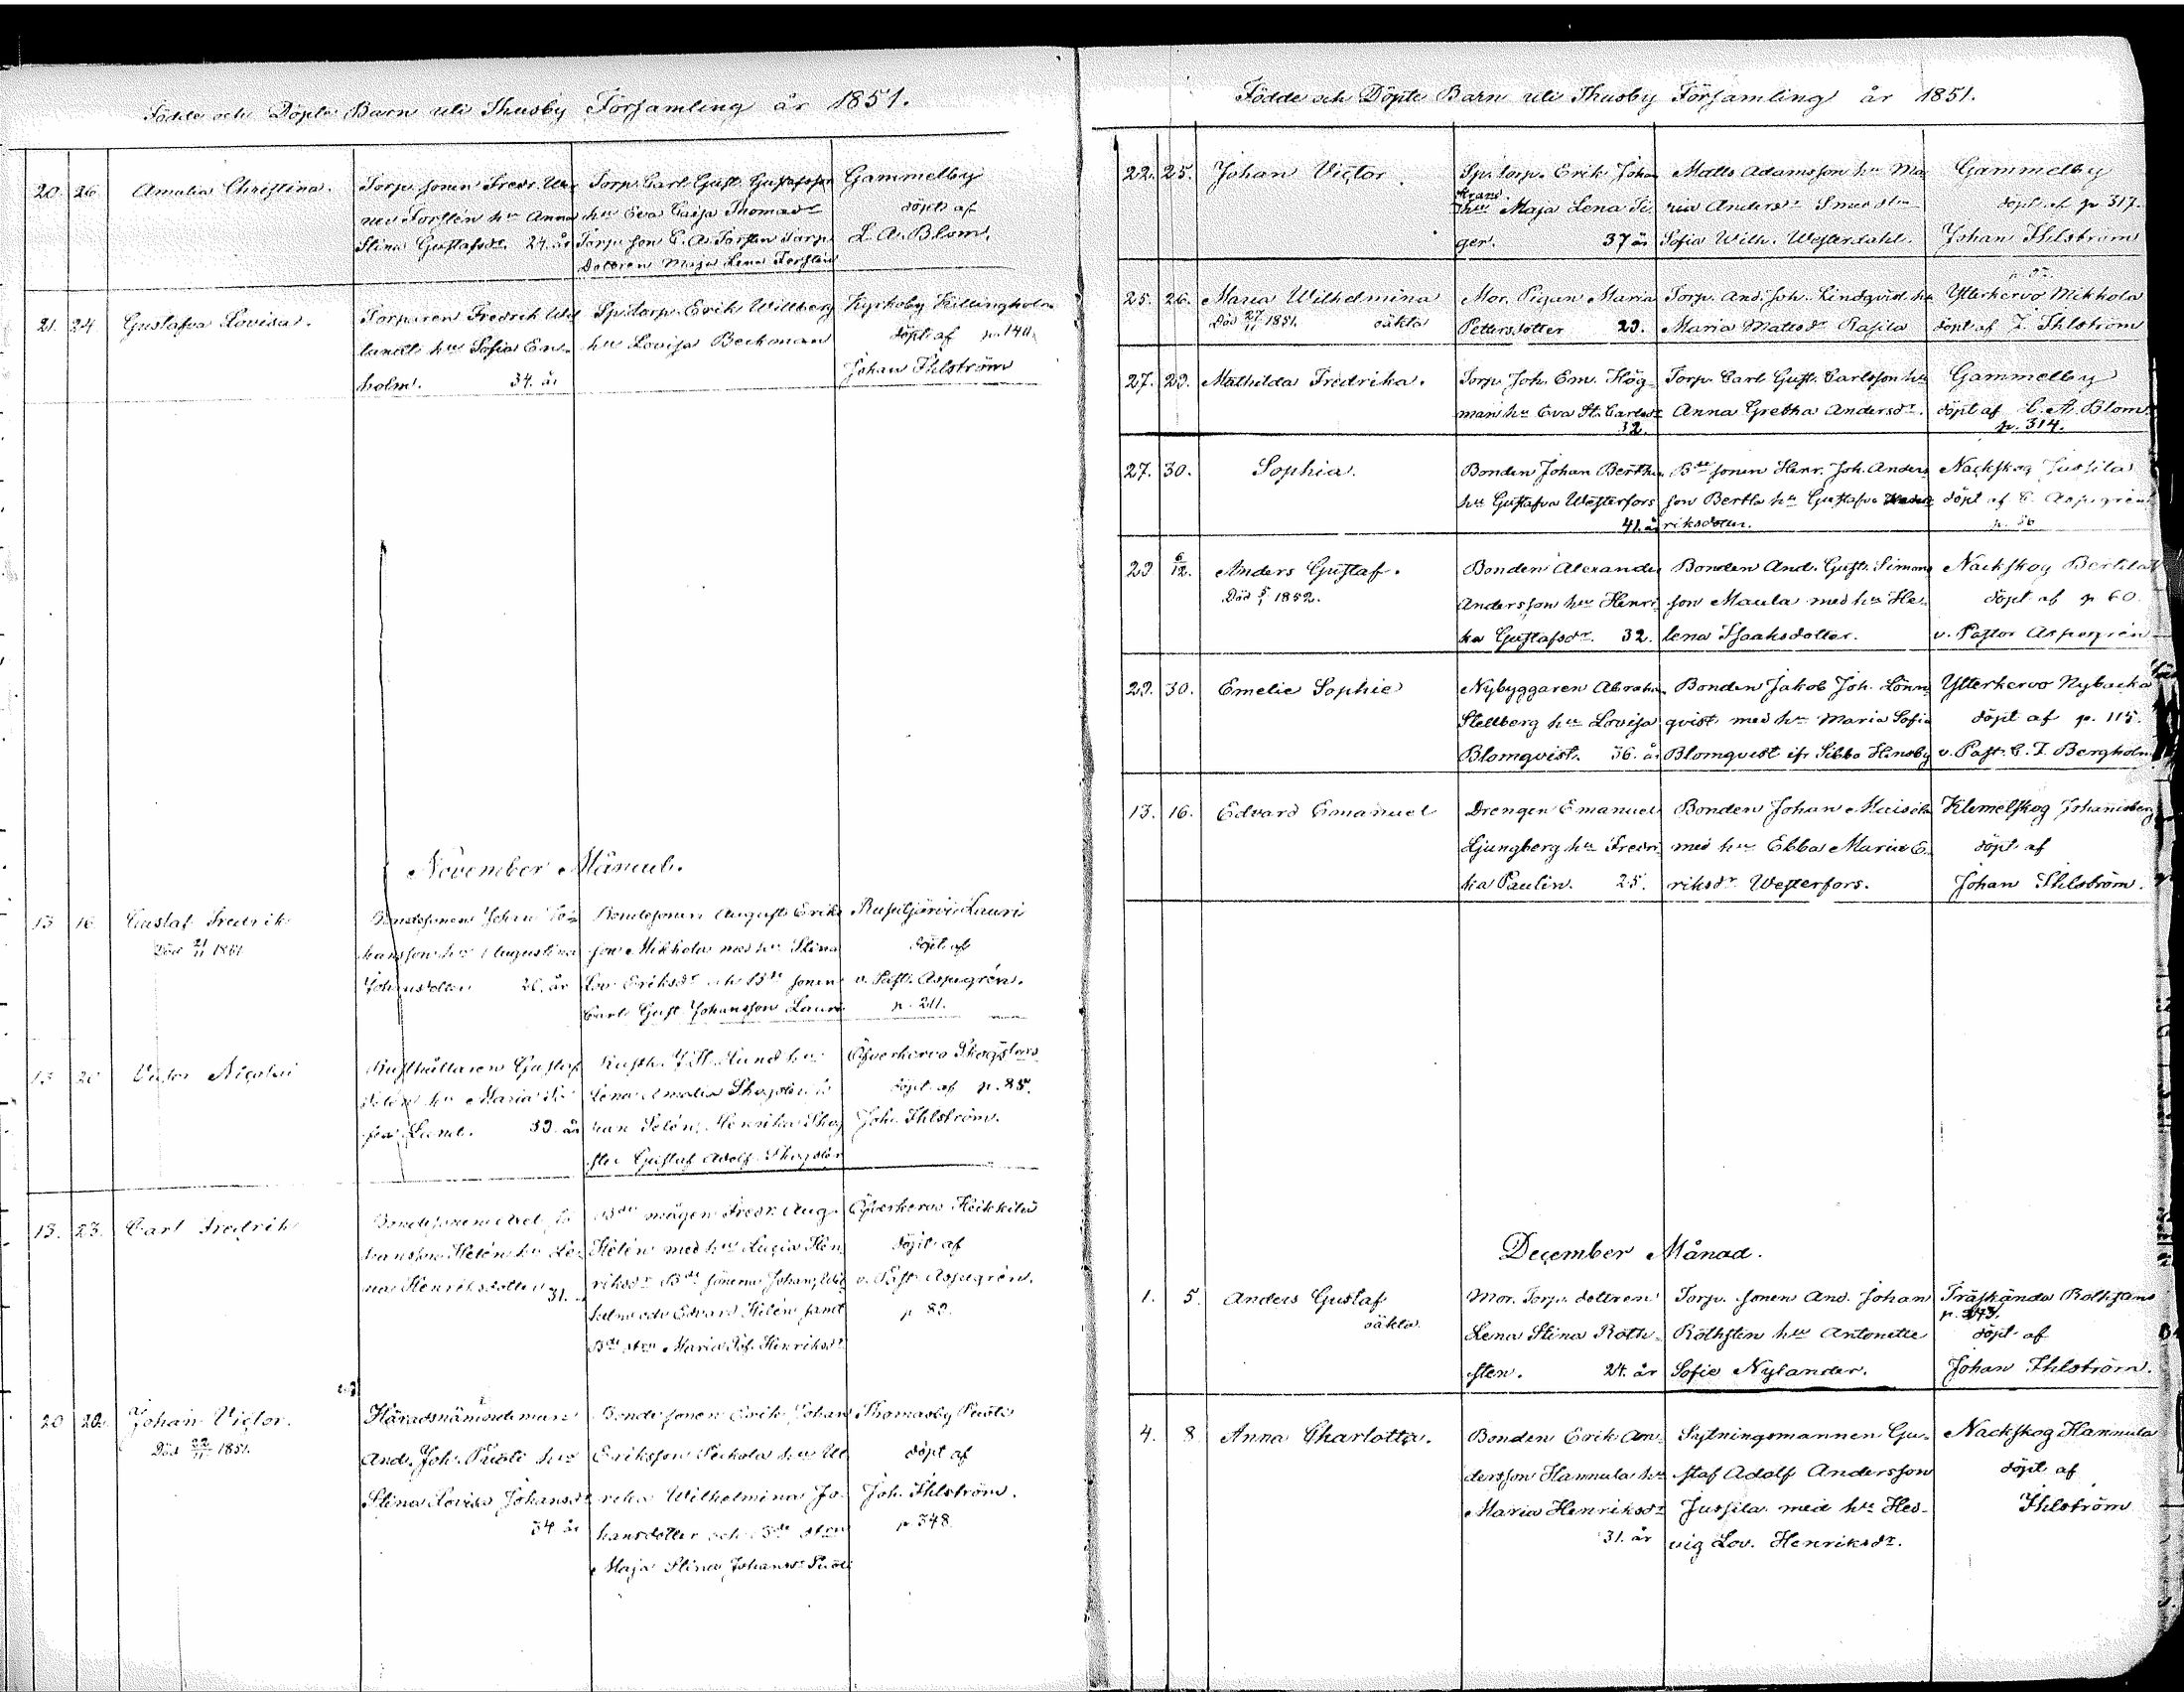 Födde och Döpte Barn uti Thusby Församling år 1851.
20. 26. Amalia Christina.
Torp. sonen Fredr. Wer
ner Forstén hu Anna
Stina Gustafsdr. 24. år
Torp. Carl Gust. Gustafsson
hu Eva Caisa Thomasdr
Torp. son C. A. Forsten Torp.
Dottren Maja Lena Forstén
Gammelby
döpt af
L. A. Blom.
21. 24 Gustafva Lovisa.
Torparen Fredrik Wid
lundt hu Sofia En-
holm. 34. år
Sp. torp. Erik Willberg
hu Lovisa Beckman
Kyrkoby Killingholm
döpt af p. 140.
Johan Ihlström
November Månad.
13 16 Gustaf Fredrik
Död 21/11 1851
Bondesonen Johan Jo-
hansson hu Augustina
Johansdotter 26. år
Bondesonen August Eriks
son Mikkola med hu Stina
Lov. Eriksdr och Bde sonen
Carl Gust Johansson Lauri
Rusutjärvi Lauri
döpt af
v. Past. Aspegrén.
p. 211.
13 20 Victor Nicolai
Rusthållaren Gustaf
Selén hu Maria So
fia Lund. 39. år
Rusth. J. H. Lund hu
Lena Amalia Skogster Jo
han Selén, Henrika Skog
ster Gustaf Adolf Skogster
Öfverkervo Skogsters
döpt af p. 85.
Joh. Ihlström.
13. 23. Carl Fredrik
Bondesonen Axel Jo
hansson Helén hu Le-
na Henriksdotter 31.
Bde mågen Fredr. Aug.
Helén med hu Lucia Hen
riksdr Bde sönerne Johan, Wil
helm och Edvard Helén samt
Bde dtrn Maria Sof. Henriksdr
Öfverkervo Heikkilä
döpt af
v. Past Aspegrén.
p 82.
20 20. Johan Victor.
Död 22/11 1851.
Häradsnämndeman
And. Joh. Prusti hu
Stina Lovisa Johansdr
34 år
Bonde sonen Erik Johan
Eriksson Seckola hu Ul
rika Wilhelmina Jo-
hansdotter och Bde dtrn
Maja Stina Johansdr
Thomasby
döpt af
Joh. Ihlström.
p 348.
Födde och Döpte Barn uti Thusby Församling år 1851.
22. 25. Johan Victor.
Sp. torp. Erik Johan
Krans
hu Maja Lena Si
ger. 37 år
Matts Adamsson hu Ma
ria Andersdr Smedsdtr
Sofia Wilh. Westerdahl.
Gammelby
döpt af p 317.
Johan Ihlström
25. 26. Maria Wilhelmina
Död 27/11 1851. oäkta
Mor. Pigan Maria
Pettersdotter 29.
Torp. And. Joh. Lindqvist hu
Maria Mattsdr Rasila
Ytterkervo Mikkola
döpt af J. Ihlström
27. 29. Mathilda Fredrika.
Torp. Joh. Em. Hög-
man hu Eva St. Carlsdr
32.
Torp. Carl Gust. Carlsson hu
Anna Gretha Andersdr.
Gammelby
döpt af L. A. Blom.
p. 314.
27. 30. Sophia.
Bonden Johan Berthu
hu Gustafva Westerfors
41. år
Bde sonen Henr. Joh. Anders
son Bertla hu Gustafva
riksdotter.
Nackskog Jussila
döpt af C. Aspegrén
p. 56
29 6/12. Anders Gustaf.
Död 5/1 1852.
Bonden Alexander
Andersson hu Henri-
ka Gustafsdr. 32.
Bonden And. Gust. Simons
son Maula med hu He-
lena Isaaksdotter.
Nackskog Berttila
döpt af p 60.
v. Pastor Aspegrén
29. 30. Emelie Sophie
Nybyggaren Abraham
Stellberg hu Lovisa
Blomqvist. 36. år
Bonden Jakob Joh. Lönn
qvist med hu Maria Sofia
Blomqvist ifr Sibbo Hindsby
Ytterkervo Nybacka
döpt af p. 115.
v. Past. C. J. Bergholm
13. 16. Edvard Emanuel
Drengen Emanuel
Ljungberg hu Fredri-
ka Paulin. 25.
Bonden Johan Maisola
med hu Ebba Maria E-
riksdr Westerfors.
Klemetskog Johannisberg
döpt af
Johan Ihlström.
December Månad.
1. 5. Anders Gustaf
oäkta
Mor. Torp. dottren
Lena Stina Roth-
sten. 24. år
Torp. sonen And. Johan
Rothsten hu Antonette
Sofie Nylander.
Träskända Rothjans
döpt af
Johan Ihlström.
4. 8 Anna Charlotta.
Bonden Erik An-
dersson Hannula hu
Maria Henriksdr
31. år
Sytningsmannen Gu-
staf Adolf Andersson
Jussila med hu Hed-
vig Lov. Henriksdr.
Nackskog Hannula
döpt af
Ihlström